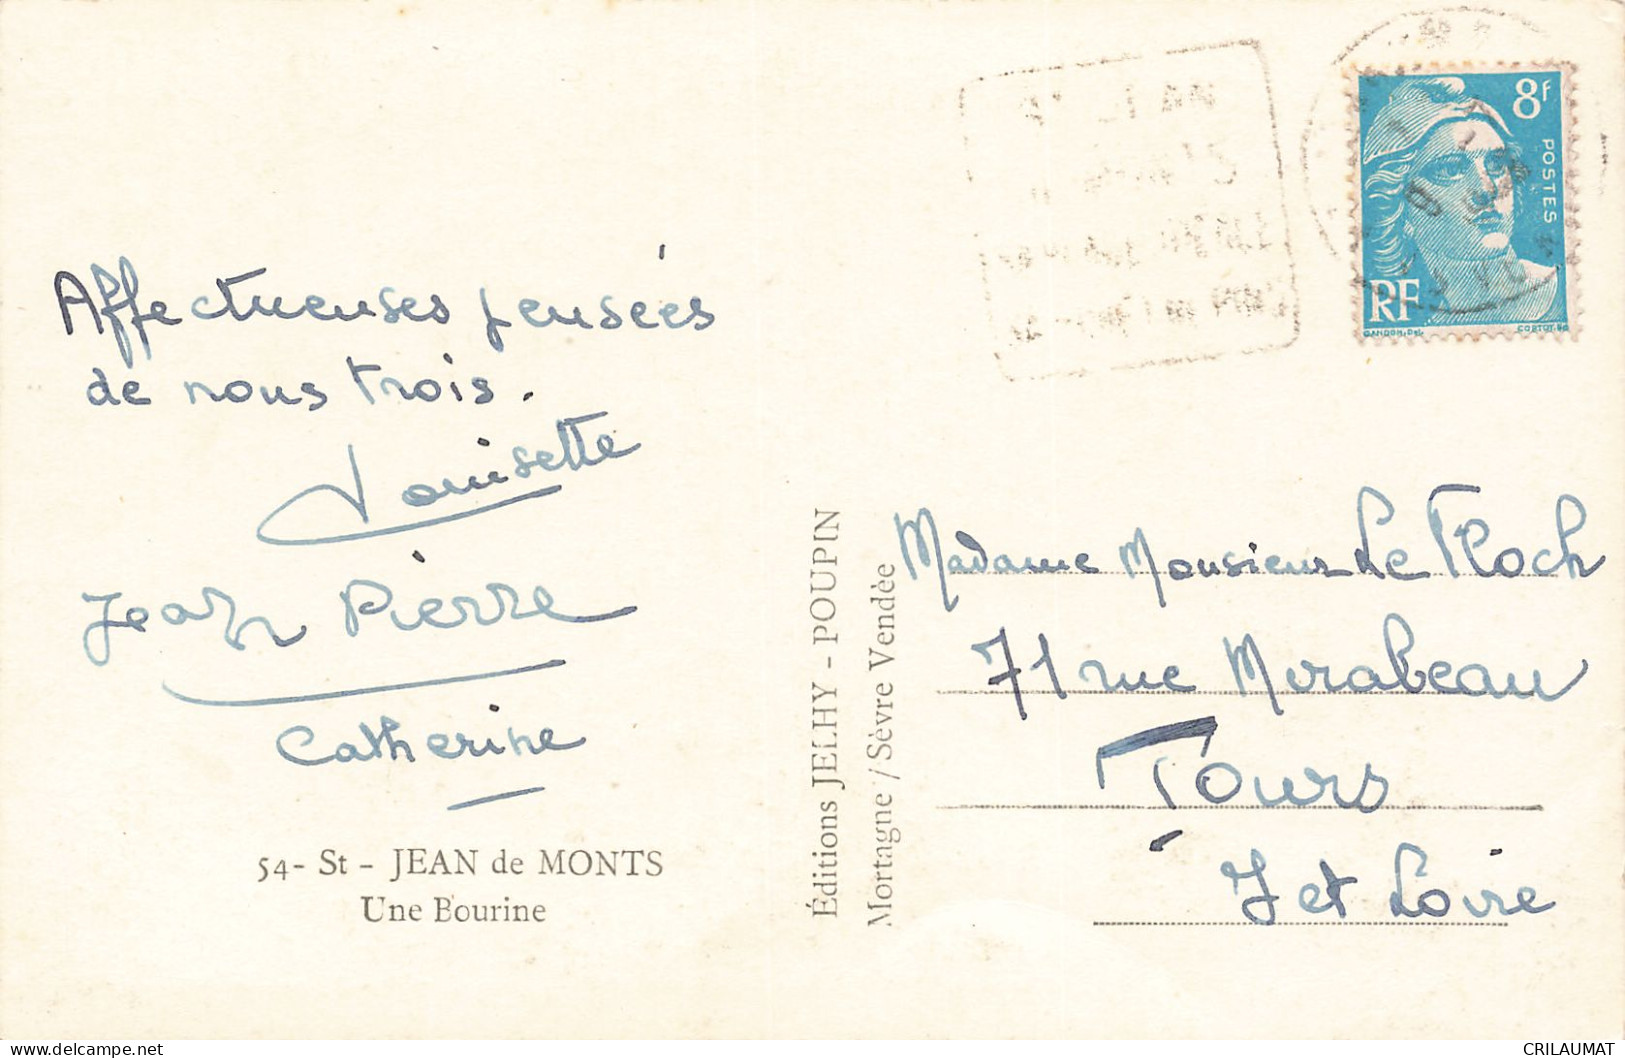 Affectueuses pensées
de nous trois.
Louisette
Jean Pierre
Catherine
54- St - JEAN de MONTS
Une Bourine
Éditions JELHY - POUPIN
Mortagne / Sèvre Vendée
8F
POSTES
RF
GANDON. DEL
CORTOT. SC
Madame Monsieur Le Floch
71 rue Mirabeau
Tours
I et Loire
CRILAUMAT